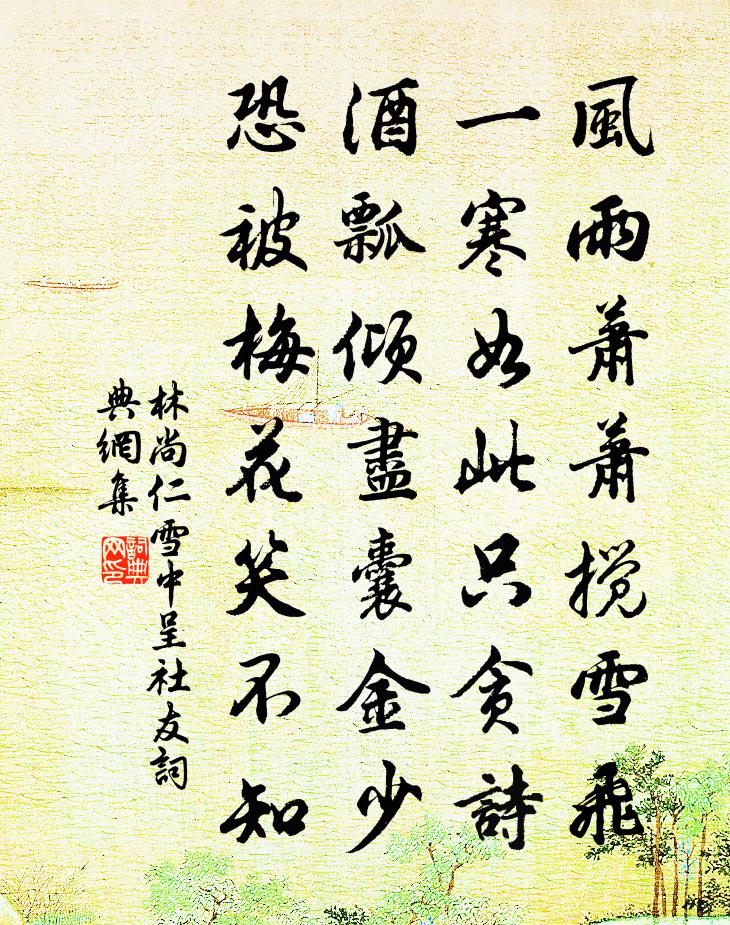 風雨蕭蕭攪雪飛
一寒如此只貪詩
酒瓢傾盡囊金少
恐被梅花笑不知
林尚仁雪中呈社友詞
典網集
詞典
网印